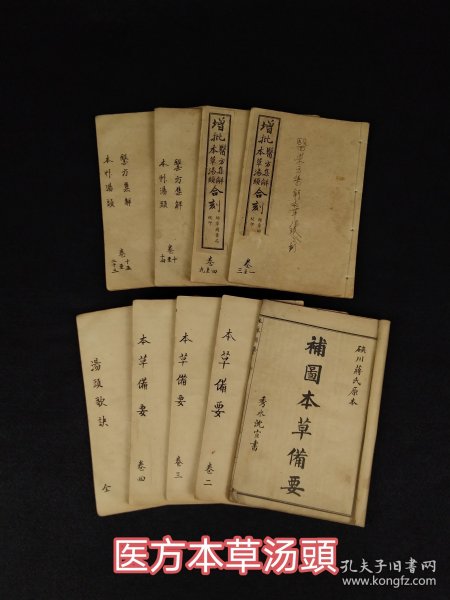 醫方集解
本艸湯頭
卷十五
至二十三
醫方集解
本艸湯頭
卷十
至十四
增批
醫方集解
本草湯頭
合刻
卷四
至九
增批
醫方集解
本草湯頭
合刻
卷一
至三
湯頭歌訣
全
本草備要
卷四
本草備要
卷三
本草備要
卷二
硤川蔣氏原本
補圖本草備要
秀水沈宝書
医方本草汤頭
孔夫子旧书网
www.kongfz.com